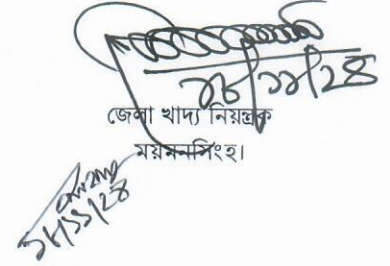 ১৮/১১/২৪
জেলা খাদ্য নিয়ন্ত্রক
ময়মনসিংহ।
১৮/১১/২৪